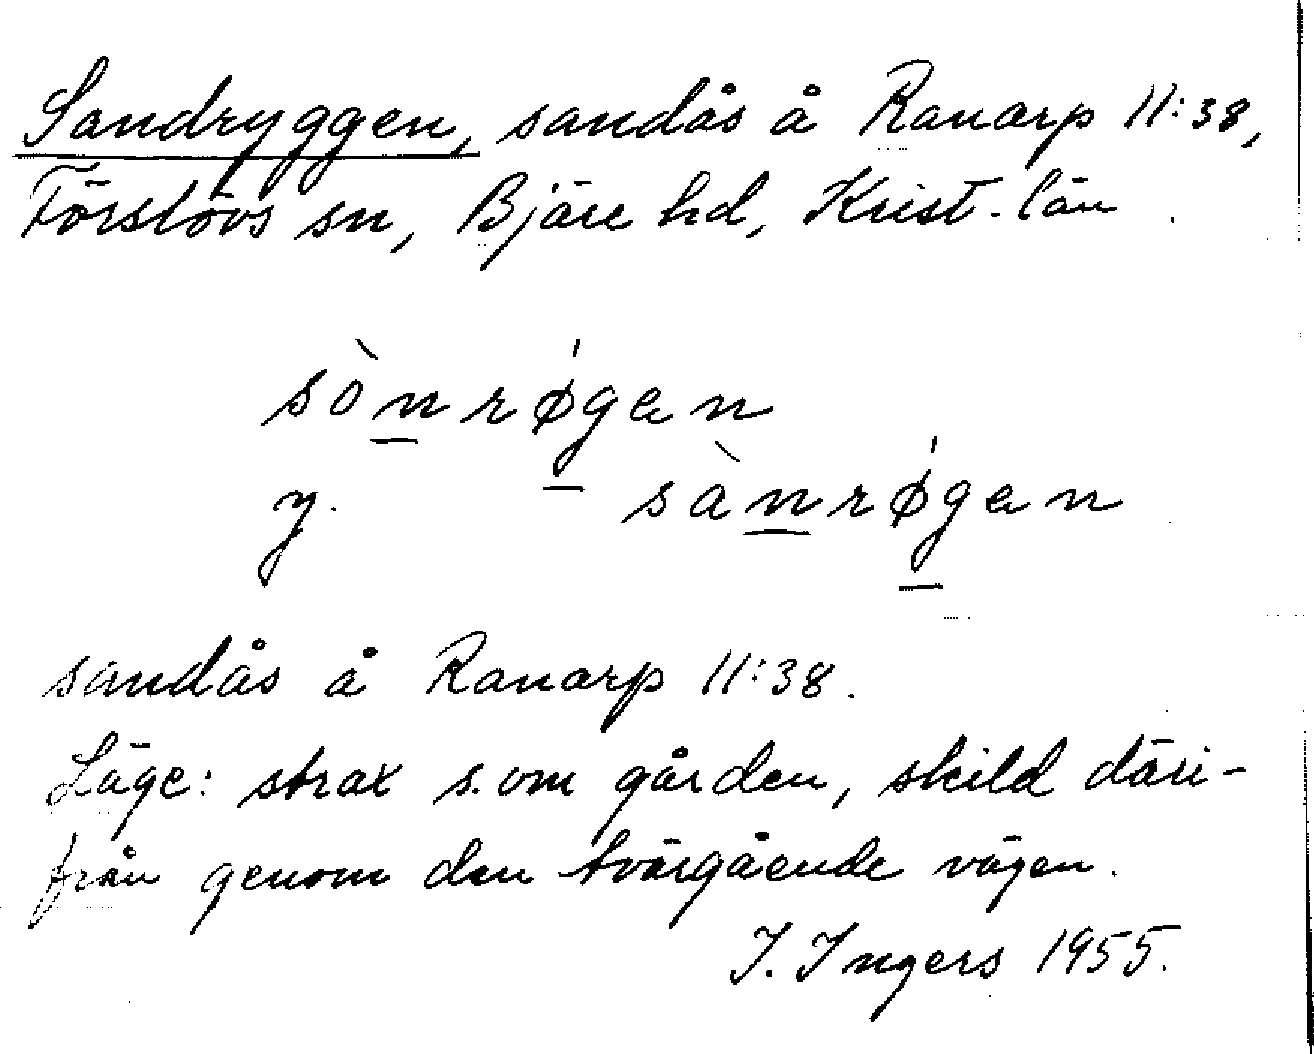 Sandryggen, sandås å Ranarp 11:38,
Förslövs sn, Bjäre hd, Krist. län.
sònrǿgen
y. sànrǿgen
sandås å Ranarp 11:38.
Läge: strax s. om gården, skild däri-
från genom den tvärgående vägen.
I. Ingers 1955.